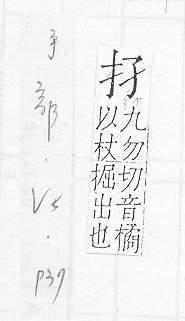 九勿切音橘
以杖掘出也
手部.V5.p37